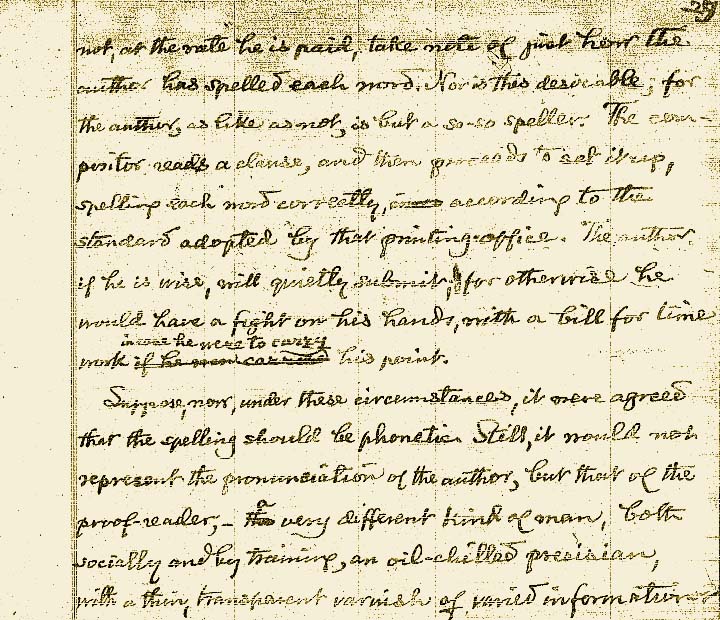 29
not, at the rate he is paid, take note of just how the
author has spelled each word. Nor is this desirable; for
the author, as like as not, is but a so-so speller. The com-
positor reads a clause, and then proceeds to set it up,
spelling each word correctly, according to the
standard adopted by that printing-office. The author,
if he is wise, will quietly submit, for otherwise he
would have a fight on his hands, with a bill for time
in case he were to carry
work if he were carried his point.
Suppose, now, under these circumstances, it were agreed
that the spelling should be phonetic. Still, it would not
represent the pronunciation of the author, but that of the
proof-reader,– a very different kind of man, both
socially and by training, an oil-chilled precisian,
with a thin, transparent varnish of varied information